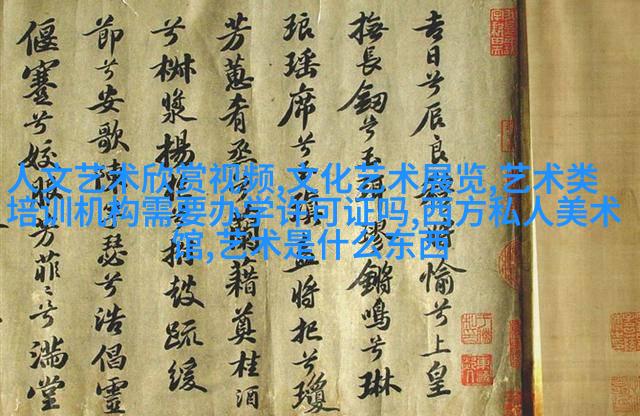 人文艺术欣赏视频,文化艺术展览,艺术类
培训机构需要办学许可证吗,西方私人美术
馆,艺术是什么东西
吉日兮辰良穆將愉兮上皇
撫長釼兮玉珥璆鏘鳴兮琳
琅瑤席兮玉瑱盍將把兮瓊
芳蕙肴烝兮蘭藉奠桂酒
兮椒漿揚枹兮拊鼓疏緩
節兮安歌陳竽瑟兮浩倡靈
偃蹇兮姣服芳菲〻兮滿堂